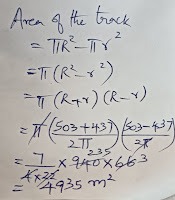 Area of the track
= πR² - πr²
= π (R² - r²)
= π (R+r) (R-r)
= π (503+437)/2π (503-437)/2π
= 7/4×22 × 940 235 × 66 3
= 4935 m²